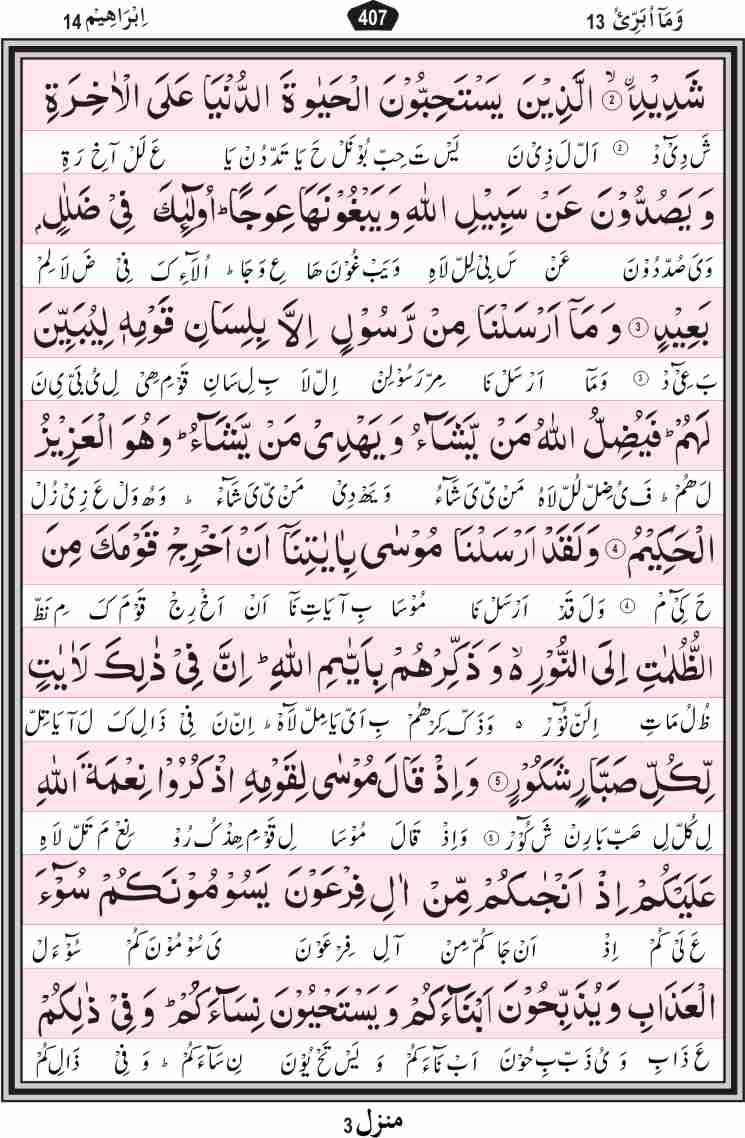 وَمَآ اُبَرِّئُ 13
407
اِبْرَاهِيْم 14
شَدِيْدِ ۟ۙ ② الَّذِيْنَ يَسْتَحِبُّوْنَ الْحَيٰوةَ الدُّنْيَا عَلَى الْاٰخِرَةِ
شَ دِىْٓ دْ ② اَلْ لَ ذِىْ نَ يَسْ تَ حِبّ بُوْ نَلْ حَ يَا تَدْ دُنْ يَا عَ لَلْ آ خِ رَ ةِ
وَ يَصُدُّوْنَ عَنْ سَبِيْلِ اللّٰهِ وَيَبْغُوْنَهَا عِوَجًا ؕ اُولٰٓئِكَ فِيْ ضَلٰلٍۭ
وَ ىَ صُدّ دُوْنَ عَنْ سَ بِىْ لِلّ لَاهِ وَيَبْ غُوْنَ هَا عِ وَ جَا ؕ اُلَآءِ كَ فِىْ ضَ لَا لِمْ
بَعِيْدٍ ③ وَ مَآ اَرْسَلْنَا مِنْ رَّسُوْلٍ اِلَّا بِلِسَانِ قَوْمِهٖ لِيُبَيِّنَ
بَ عِىْٓ دْ ③ وَمَآ اَرْ سَلْ نَا مِرّ رَسُوْ لِنْ اِلّ لَا بِ لِ سَانِ قَوْ مِ هِىْ لِ ىُ بَىّ ىِ نَ
لَهُمْ ؕ فَيُضِلُّ اللّٰهُ مَنْ يَّشَآءُ وَ يَهْدِيْ مَنْ يَّشَآءُ ؕ وَهُوَ الْعَزِيْزُ
لَ هُمْ ؕ فَ ىُ ضِلّ لُلّ لَاهُ مَنْ ىّ ىَ شَآءُ وَ يَهْ دِىْ مَنْ ىّ ىَ شَآءْ ؕ وَ هُ وَلْ عَ زِىْ زُلْ
الْحَكِيْمُ ④ وَلَقَدْ اَرْسَلْنَا مُوْسٰى بِاٰيٰتِنَآ اَنْ اَخْرِجْ قَوْمَكَ مِنَ
حَ كِىْٓ مْ ④ وَلَ قَدْ اَرْ سَلْ نَا مُوْسَا بِ آ يَاتِ نَآ اَنْ اَخْ رِجْ قَوْ مَ كَ مِ نَظّ
الظُّلُمٰتِ اِلَى النُّوْرِ ۙ۬ وَ ذَكِّرْهُمْ بِاَيّٰىمِ اللّٰهِ ؕ اِنَّ فِيْ ذٰلِكَ لَاٰيٰتٍ
ظُ لُ مَاتِ اِلَنّ نُوْٓرْ ۵ وَذَكّ كِرْهُمْ بِ اَىّ يَا مِلّ لَآهْ ؕ اِنّ نَ فِىْ ذَالِ كَ لَ آ يَا تِلّ
لِّكُلِّ صَبَّارٍ شَكُوْرٍ ⑤ وَاِذْ قَالَ مُوْسٰى لِقَوْمِهِ اذْكُرُوْا نِعْمَةَ اللّٰهِ
لِ كُلّ لِ صَبّ بَارِنْ شَ كُوْٓرْ ⑤ وَاِذْ قَالَ مُوْسَا لِ قَوْ مِ هِذْ كُ رُوْ نِعْ مَ تَلّ لَاهِ
عَلَيْكُمْ اِذْ اَنْجٰىكُمْ مِّنْ اٰلِ فِرْعَوْنَ يَسُوْمُوْنَكُمْ سُوْٓءَ
عَ لَىْ كُمْ اِذْ اَنْ جَا كُمّ مِنْ آلِ فِرْ عَوْنَ ىَ سُوْ مُوْنَ كُمْ سُوْٓءَلْ
الْعَذَابِ وَ يُذَبِّحُوْنَ اَبْنَآءَكُمْ وَ يَسْتَحْيُوْنَ نِسَآءَكُمْ ؕ وَ فِيْ ذٰلِكُمْ
عَ ذَابِ وَ ىُ ذَبّ بِ حُوْنَ اَبْ نَآءَ كُمْ وَ يَسْ تَحْ يُوْنَ نِ سَآءَكُمْ ؕ وَ فِىْ ذَالِ كُمْ
منزل 3